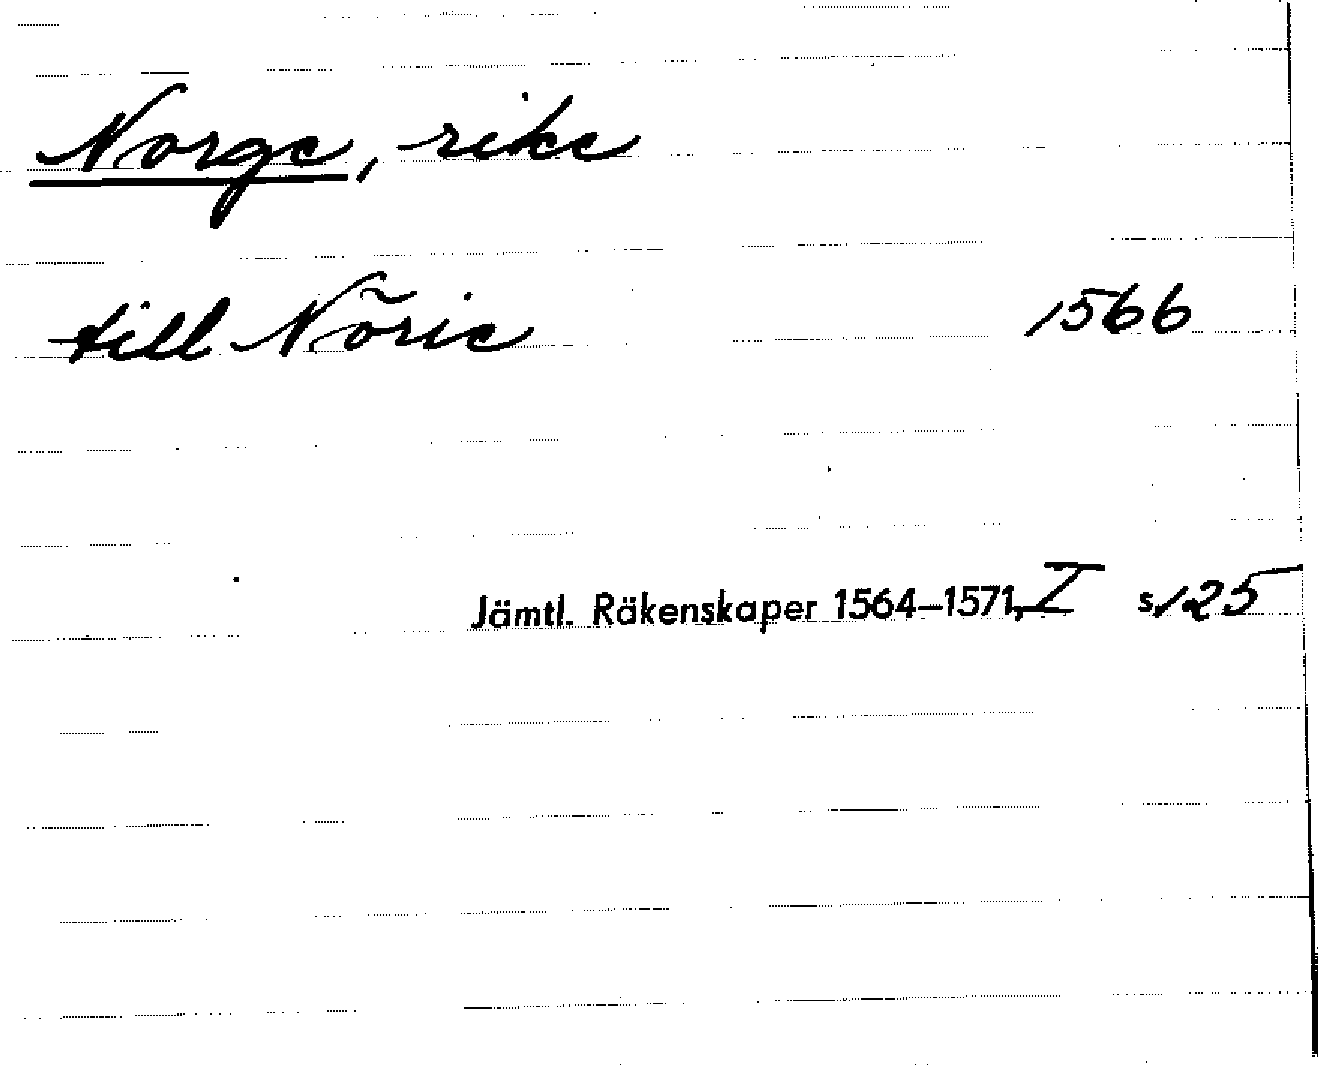 Norge, rike
till Nõrie 1566
Jämtl. Räkenskaper 1564–1571, I s. 125